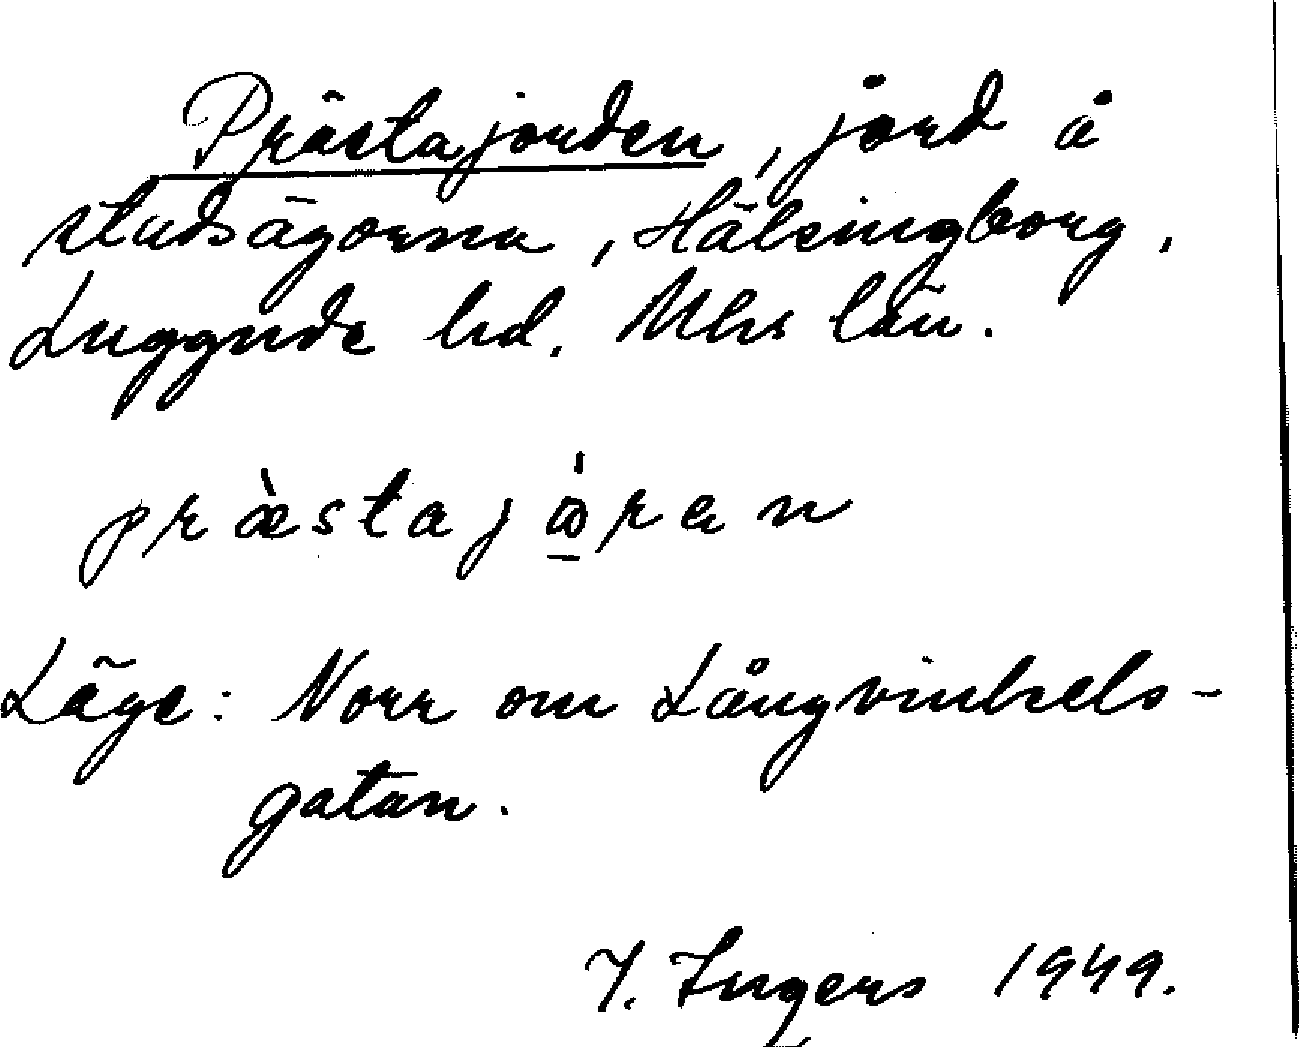 Prästajorden, jord å
stadsägorna, Hälsingborg,
Luggude hd. Mhs län.
præ̀stajώ̲ran
Läge: Norr om Långvinkels-
gatan.
I. Ingers 1949.